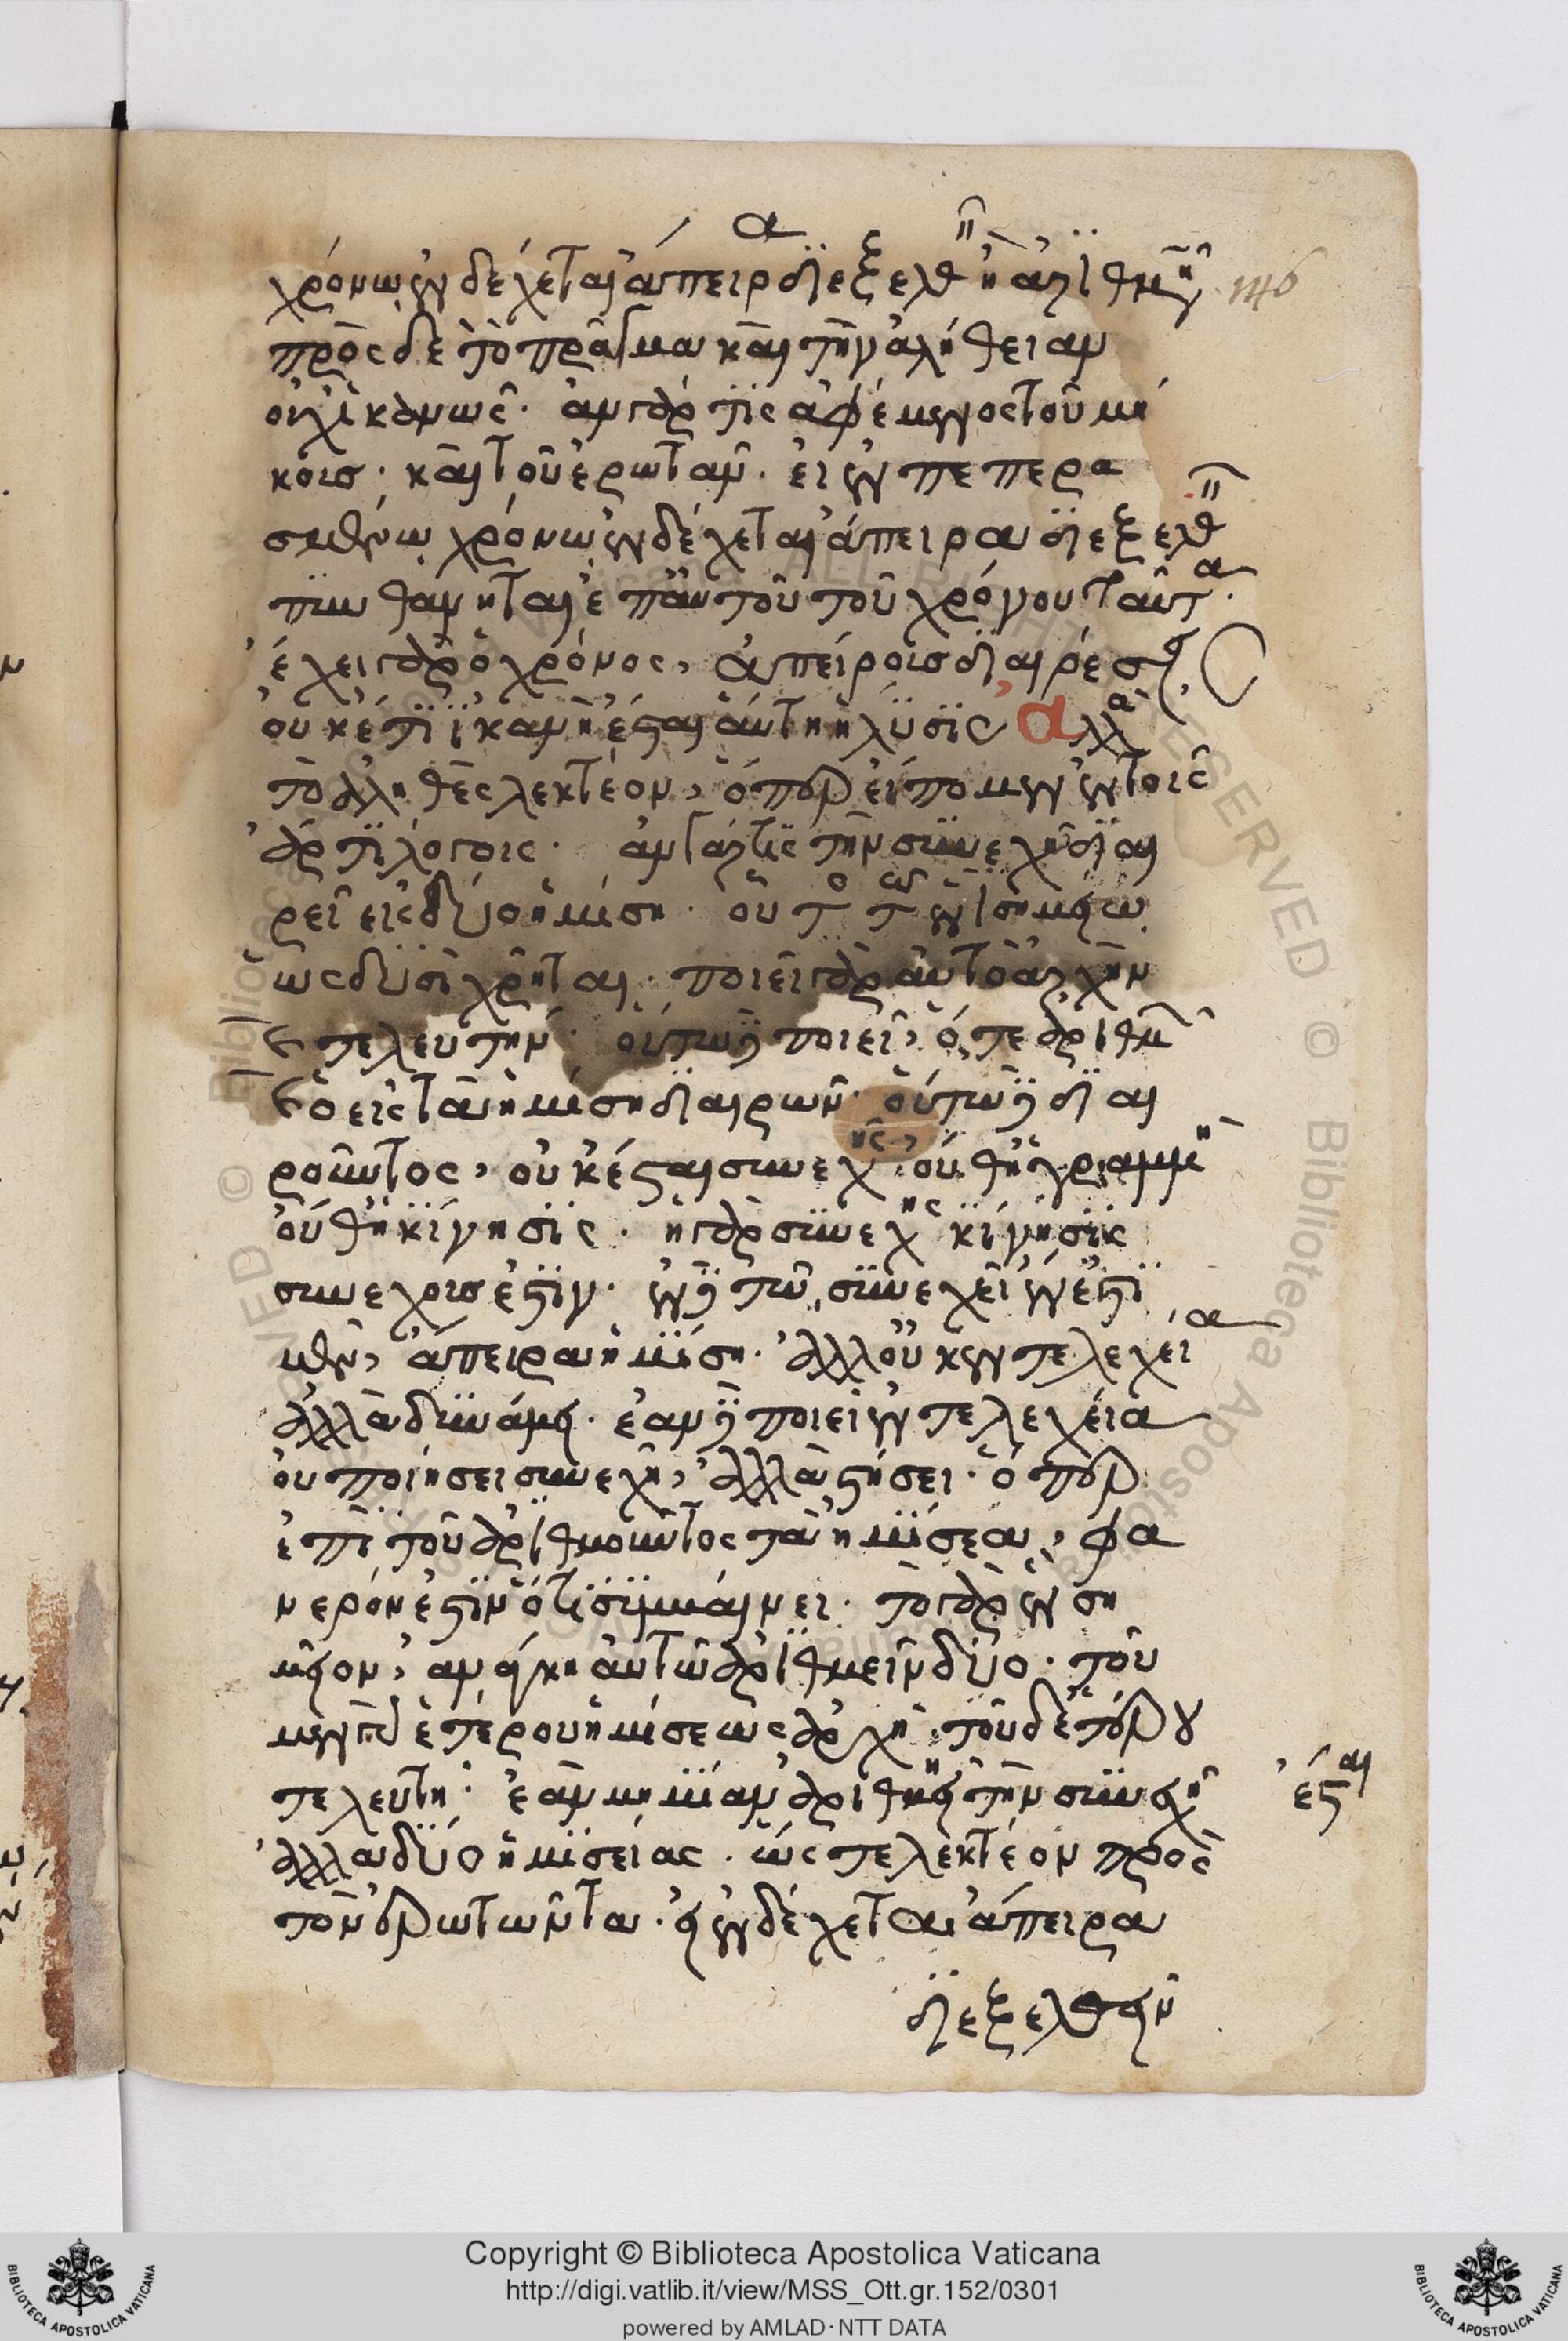 χρόνω ἐνδέχεται ἄπειρα διεξελθεῖν ἢ ἀριθμῆσαι
πρὸς δὲ τὸ πρᾶγμα καὶ τὴν ἀλήθειαν
οὐχ ἱκανῶς· ἂν γάρ τις ἀφέμενος τοῦ μή
κους· καὶ τοῦ ἐρωτᾶν· εἰ ἐν πεπερα
σμένω χρόνω ἐνδέχεται ἄπειρα διεξελθεῖν
πυνθάνηται ἐπ' αὐτοῦ τοῦ χρόνου ταῦτα·
ἔχει γὰρ ὁ χρόνος, ἀπείρους διαιρέσεις
οὐκέτι ἱκανὴ ἔσται αὕτη ἡ λύσις ἀλλὰ
τὸ ἀληθὲς λεκτέον, ὅπερ εἴπομεν ἐν τοῖς
ἄρτι λόγοις· ἂν γάρ τις τὴν συνεχῆ διαι
ρεῖ εἰς δύο ἡμίση· οὗτος τῶ ἑνὶ σημείω
ὡς δυσὶ χρῆται· ποιεῖ γὰρ αὐτὸ ἀρχὴν
καὶ τελευτήν· οὕτω δὲ ποιεῖ, ὅ, τε ἀριθμῶν
καὶ ὁ εἰς τὰ ἡμίση διαιρῶν· οὕτω δὲ διαι
ροῦντος, οὐκ ἔσται συνεχὴς, οὔθ' ἡ γραμμὴ
οὔθ' ἡ κίνησις· ἡ γὰρ συνεχὴς κίνησις
συνεχοῦς ἐστιν· ἐν δὲ τῶ συνεχεῖ ἔνεστι
μὲν, ἄπειρα ἡμίση· ἀλλ' οὐκ ἐντελεχεία
ἀλλὰ δυνάμει· ἐὰν δὲ ποιεῖ ἐντελεχεία
οὐ ποιήσει συνεχῆ, ἀλλὰ στήσει· ὅπερ
ἐπὶ τοῦ ἀριθμοῦντος τὰ ἡμίσεα, φα
νερόν ἐστιν ὅτι συμβαίνει· τὸ γὰρ ἓν ση
μεῖον, ἀνάγκη αὐτῶ ἀριθμεῖν δύο· τοῦ
μὲν γὰρ ἑτέρου ἡμίσεως ἀρχὴ, τοῦ δ' ἑτέρου
τελευτή· ἐὰν μὴ μίαν ἀριθμῆ τὴν συνεχῆ
ἔσται
ἀλλὰ δύο ἡμισείας· ὥστε λεκτέον πρὸς
τὸν ἐρωτῶντα· εἰ ἐνδέχεται ἄπειρα
διεξελθεῖν
Copyright © Biblioteca Apostolica Vaticana
http://digi.vatlib.it/view/MSS_Ott.gr.152/0301
powered by AMLAD·NTT DATA
BIBLIOTECA APOSTOLICA VATICANA
BIBLIOTECA APOSTOLICA VATICANA